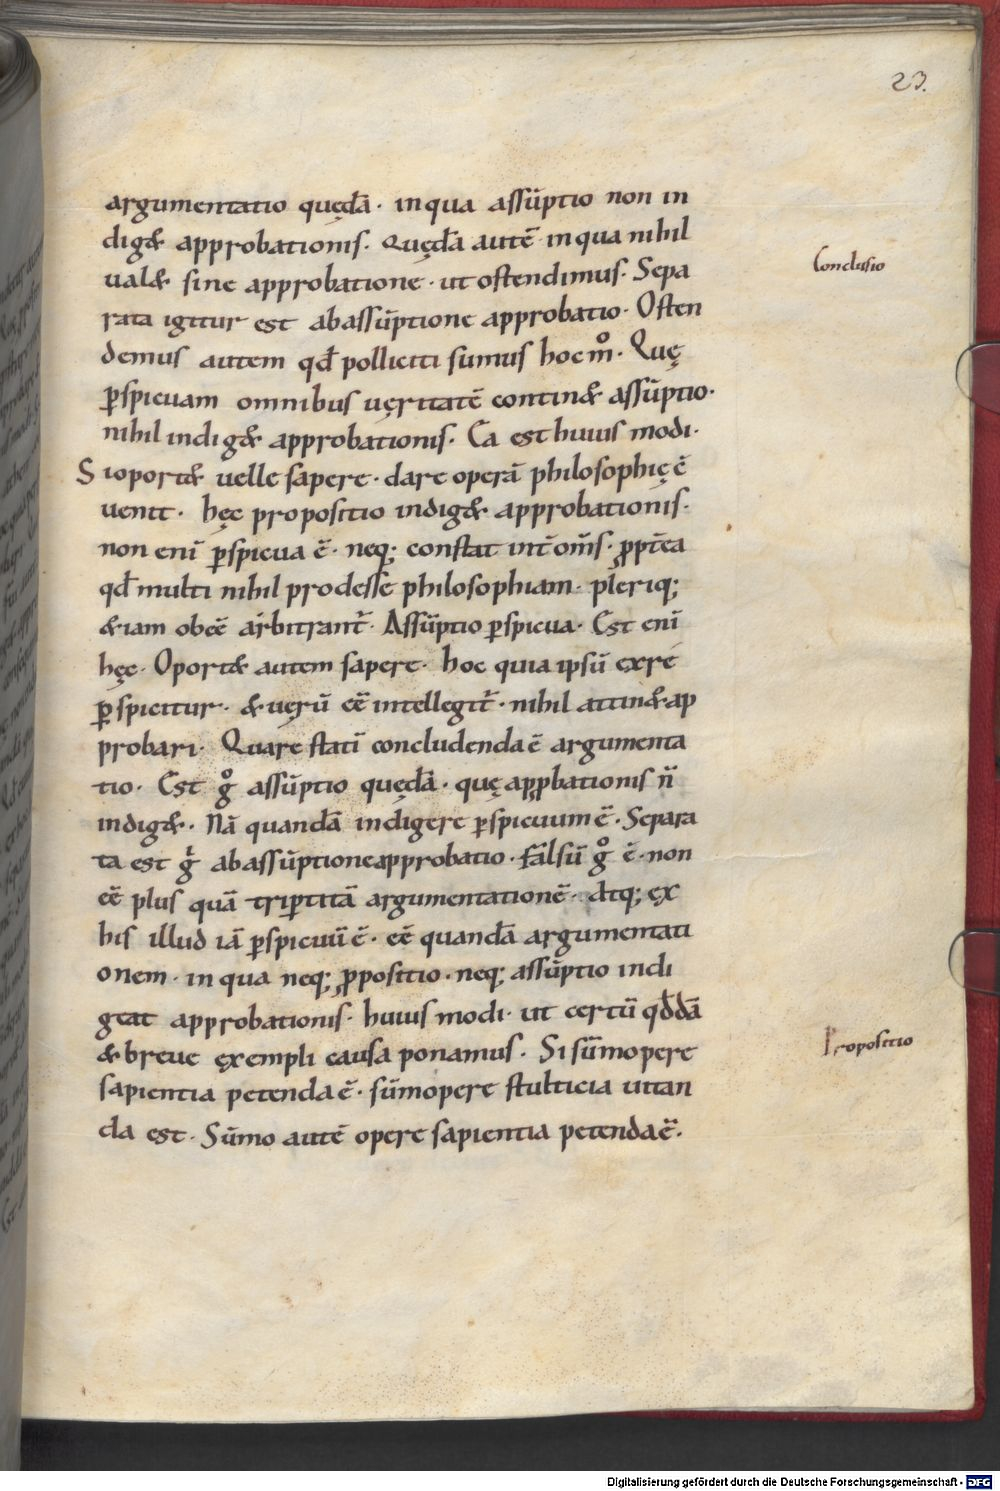 23.
argumentatio quędā · in qua assūptio non in
dig& approbationis · Quędā autē in qua nihil
ual& sine approbatione · ut ostendimus · Sepa
Conclusio
rata igitur est ab assūptione approbatio · Osten
demus autem qđ polliciti sumus hoc m̊ · Quę
ꝑspicuam omnibus uęritatē contin& assūptio ·
nihil indig& approbationis · Ea est huius modi ·
Si oport& uelle sapere · dare operā philosophię c̄
uenit · hęc propositio indig& approbationis ·
non enī ꝑspicua ē · neq; constat int̄ om̄s · ꝓpt̄ea
qđ multi nihil prodesse philosophiam · pleriq;
&iam obeē arbitrant̄ · Assūptio ꝑspicua · Est enī
hęc · Oport& autem sapere · hoc quia ipsū ex re
ꝑspicitur · & uęrū eē intellegit̄ · nihil attin& ap
probari · Quare statī concludenda ē argumenta
tio · Est g̊ assūptio quędā · quę apꝓbationis n̄
indig& · Nā quandā indigere ꝑspicuum ē · Separa
ta est g̊ ab assūptione approbatio · Falsū g̊ ē · non
eē plus quā triꝑtitā argumentationē · Atq; ęx
his illud iā ꝑspicuū ē · eē quandā argumentati
onem · in qua neq; ꝓpositio · neq; assūptio indi
geat approbationis · huius modi · ut certū qđdā
Propositio
& breue ęxempli causa ponamus · Si sūmopere
sapientia petenda ē · sūmopere stulticia uitan
da est · Sūmo autē opere sapientia petenda ē ·
Digitalisierung gefördert durch die Deutsche Forschungsgemeinschaft - DFG